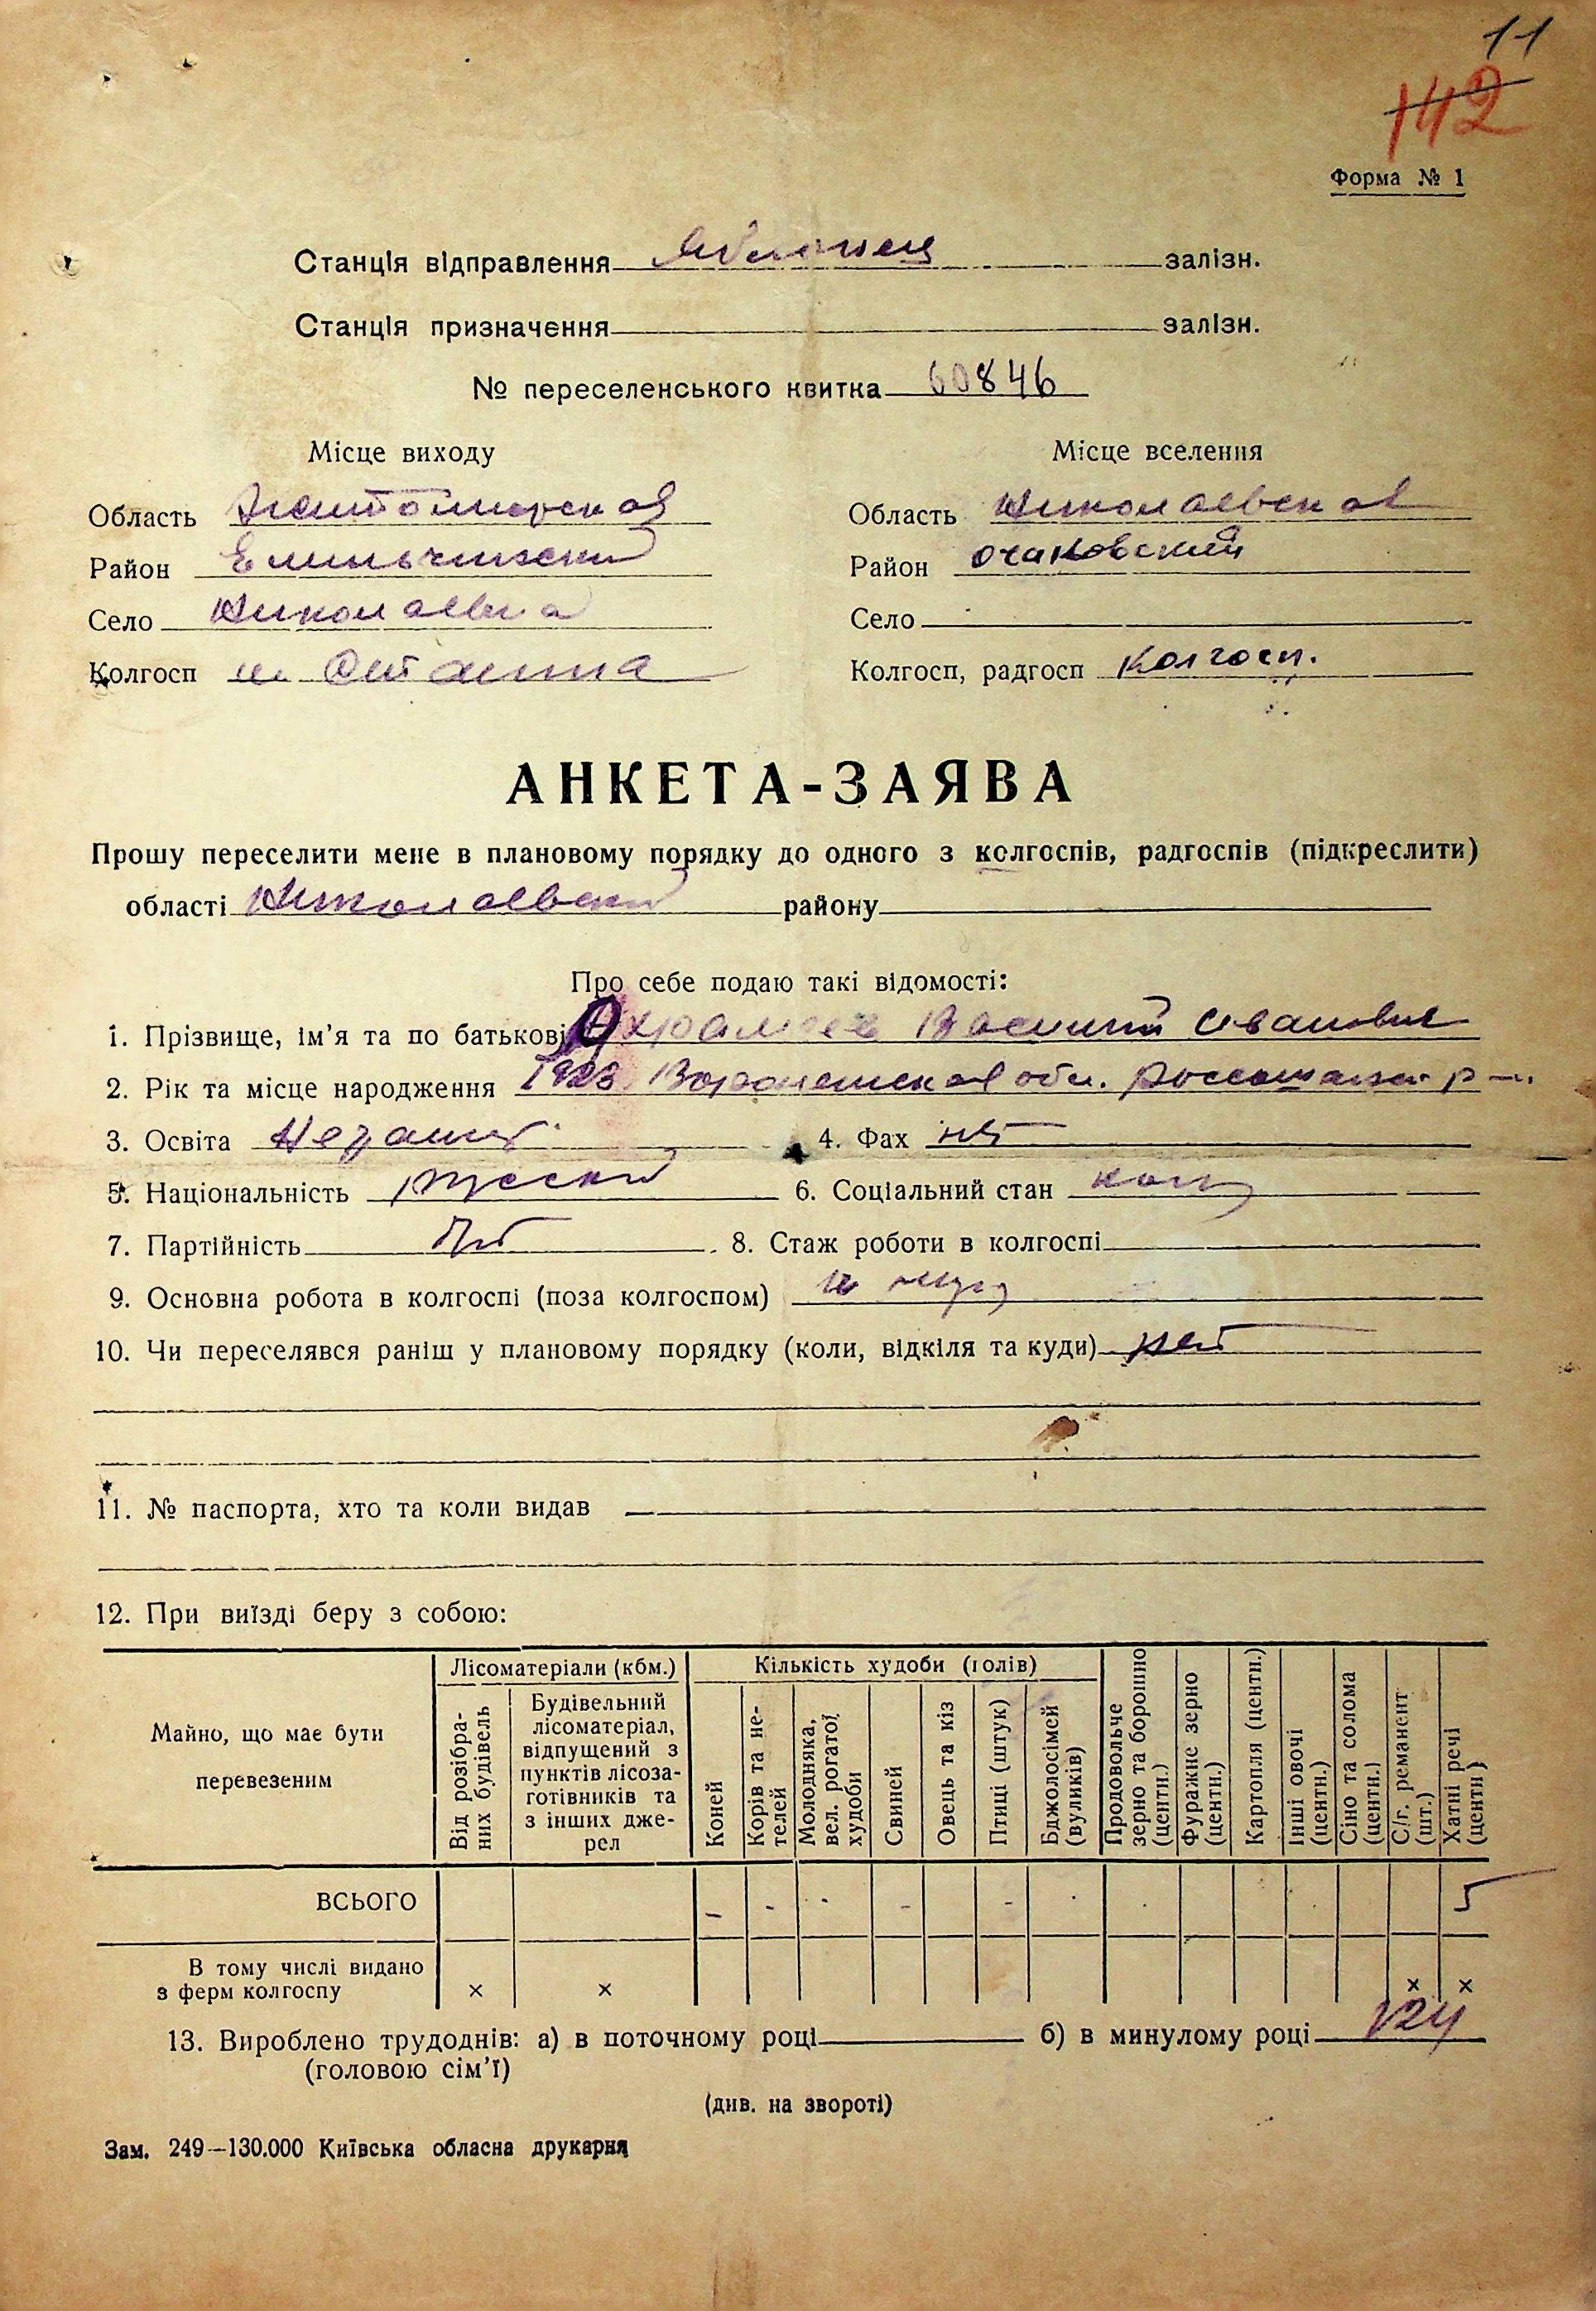 11
142
Форма № 1
Станція відправлення Яблонец залізн.
Станція призначення залізн.
№ переселенського квитка 60846
Місце виходу Місце вселення
Область Житомирская Область Николаевская
Район Емильчинский Район Очаковский
Село Николаевка Село
Колгосп им Сталина Колгосп, радгосп Колгосп.
АНКЕТА-ЗАЯВА
Прошу переселити мене в плановому порядку до одного з колгоспів, радгоспів (підкреслити)
області Николаевский району
Про себе подаю такі відомості:
1. Прізвище, ім’я та по батькові Василий Иванович
2. Рік та місце народження 1923 Воронежская обл. Россошанск р-н
3. Освіта 4. Фах нет
5. Національність русский 6. Соціальний стан колх
7. Партійність б/п 8. Стаж роботи в колгоспі
9. Основна робота в колгоспі (поза колгоспом)
10. Чи переселявся раніш у плановому порядку (коли, відкіля та куди) нет
11. № паспорта, хто та коли видав
12. При виїзді беру з собою:
Майно, що має бути перевезеним
Лісоматеріали (кбм.)
Від розібраних будівель
Будівельний лісоматеріал, відпущений з пунктів лісозаготівників та з інших джерел
Кількість худоби (голів)
Коней
Корів та нетелей
Молодняка, вел. рогатої худоби
Свиней
Овець та кіз
Птиці (штук)
Бджолосімей (вуликів)
Продовольче зерно та борошно (центн.)
Фуражне зерно (центн.)
Картопля (центн.)
Інші овочі (центн.)
Сіно та солома (центн.)
С/г. реманент (шт.)
Хатні речі (центн)
ВСЬОГО – - - - - 5
В тому числі видано
з ферм колгоспу × × × ×
13. Вироблено трудоднів: а) в поточному році б) в минулому році 124
(головою сім’ї)
(див. на звороті)
Зам. 249—130.000 Київська обласна друкарня